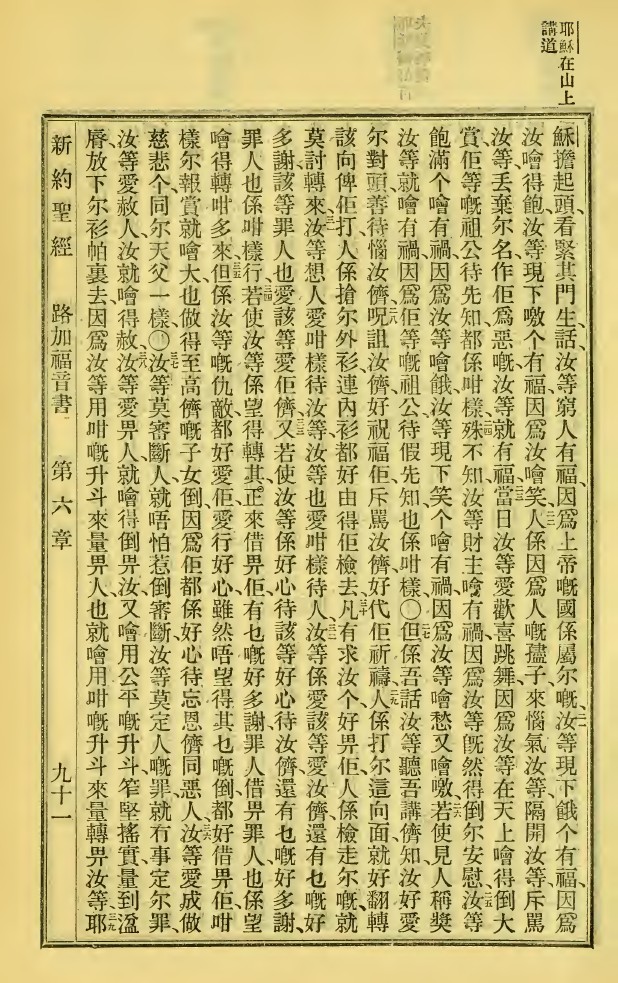 耶穌在山上
講道
穌擔起頭、看緊其門生、話、汝等窮人有福、因爲上帝嘅國係屬尔嘅、二一汝等現下餓个有福、因爲
汝噲得飽、汝等現下噭个有福、因爲汝噲笑、二二人係因爲人嘅孻子、來惱氣汝等、隔開汝等、斥罵
汝等、丟棄尔名、作佢爲惡嘅、汝等就有福、二三當日汝等愛歡喜跳舞、因爲汝等在天上噲得倒大
賞、佢等嘅祖公待先知、都係咁樣、二四殊不知汝等財主噲有禍、因爲汝等既然得倒尔安慰、二五汝等
飽滿个噲有禍、因爲汝等噲餓、汝等現下笑个噲有禍、因爲汝等噲愁、又噲噭、二六若使見人稱獎
汝等、就噲有禍、因爲佢等嘅祖公待假先知、也係咁樣、〇二七但係吾話汝等聽吾講儕知、汝好愛
尔對頭、善待惱汝儕、二八呪詛汝儕、好祝福佢、斥罵汝儕、好代佢祈禱、二九人係打尔這向面、就好翻轉
該向俾佢打、人係搶尔外衫、連內衫都好由得佢檢去、三十凡有求汝个、好畀佢、人係檢走尔嘅、就
莫討轉來、三一汝等想人愛咁樣待汝等、汝等也愛咁樣待人、三二汝等係愛該等愛汝儕、還有乜嘅好
多謝、該等罪人也愛該等愛佢儕、三三又若使汝等係好心待該等好心待汝儕、還有乜嘅好多謝、
罪人也係咁樣行、三四若使汝等係望得轉其、正來借畀佢、有乜嘅好多謝、罪人借畀罪人、也係望
噲得轉咁多來、三五但係汝等嘅仇敵、都好愛佢、愛行好心、雖然唔望得其乜嘅倒、都好借畀佢、咁
樣尔報賞就噲大、也做得至高儕嘅子女倒、因爲佢都係好心待忘恩儕同惡人、三六汝等愛成做
慈悲个、同尔天父一樣、〇三七汝等莫審斷人、就唔怕惹倒審斷、汝等莫定人嘅罪、就冇事定尔罪、
汝等愛赦人、汝就噲得赦、三八汝等愛畀人、就噲得倒畀汝、又噲用公平嘅升斗、笮堅搖實量到溢
脣、放下尔衫帕裏去、因爲汝等用咁嘅升斗來量畀人、也就噲用咁嘅升斗來量轉畀汝等、三九耶
新約聖經 路加福音書 第六章 九十一